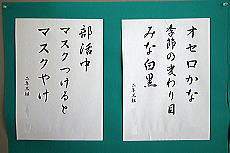 オセロかな
季節の変わり目
みな白黒
部活中
マスクつけると
マスクやけ